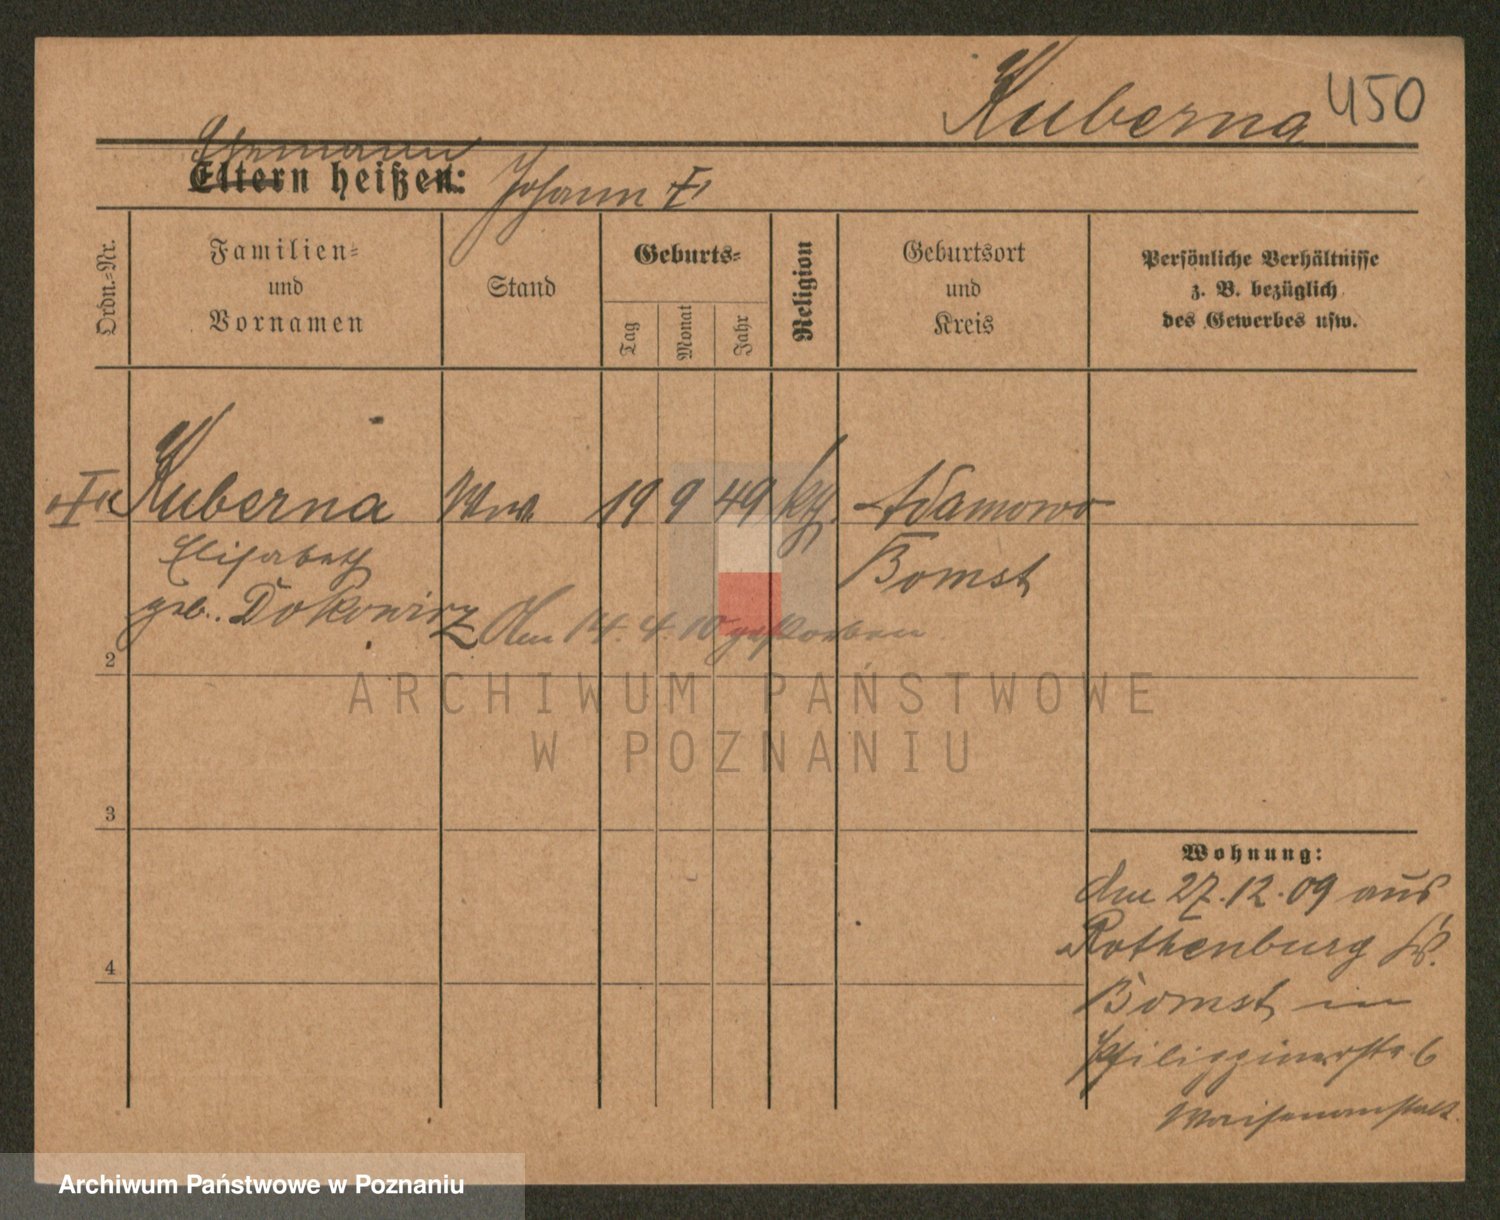 Kuberna 450
Ehemann
Eltern heißen: Johann †
Ordn.-Nr.
Familien-
und
Vornamen
Stand
Geburts-
Tag
Monat
Jahr
Religion
Geburtsort
und
Kreis
Persönliche Verhältnisse
z. B. bezüglich
des Gewerbes usw.
Kuberna Ww. 19 9 49 kth. Adamowo
Elisabeth Bomst
geb. Dokowicz Am 14.4.10 gestorben
2
3
4
Wohnung:
Am 27.12.09 aus
Rothenburg Kr.
Bomst in
Philippinerstr. 6
Waisenanstalt.
ARCHIWUM PAŃSTWOWE
W POZNANIU
Archiwum Państwowe w Poznaniu